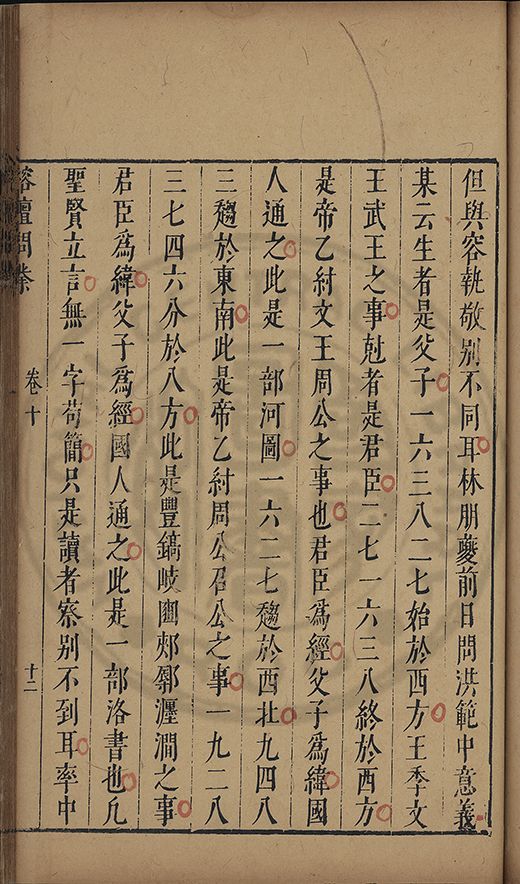 但與容執敬別不同耳林朋夔前日問洪範中意義
某云生者是父子一六三八二七始於西方王季文
王武王之事尅者是君臣二七一六三八終於西方
是帝乙紂文王周公之事也君臣爲經父子爲緯國
人通之此是一部河圖一六二七趨於西北九四八
三趨於東南此是帝乙紂周公召公之事一九二八
三七四六分於八方此是豐鎬岐豳郟鄏瀍澗之事
君臣爲緯父子爲經國人通之此是一部洛書也凡
聖賢立言無一字苟簡只是讀者察別不到耳率中
榕壇問業
卷十
十二